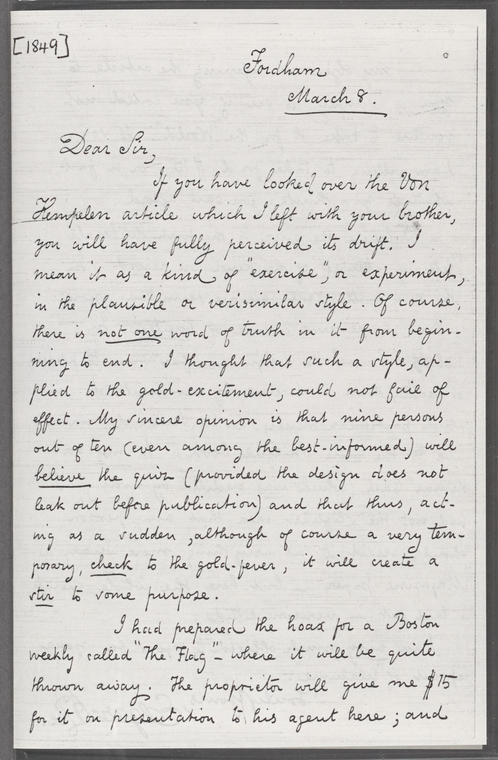 [1849]
Fordham
March 8.
Dear Sir,
If you have looked over the Von
Kempelen article which I left with your brother,
you will have fully perceived its drift. I
mean it as a kind of "exercise", or experiment,
in the plausible or verisimilar style. Of course,
there is not one word of truth in it from begin-
ning to end. I thought that such a style, ap-
plied to the gold-excitement, could not fail of
effect. My sincere opinion is that nine persons
out of ten (even among the best-informed) will
believe the quiz (provided the design does not
leak out before publication) and that thus, act-
ing as a sudden, although of course a very tem-
porary, check to the gold-fever, it will create a
stir to some purpose.
I had prepared the hoax for a Boston
weekly called "The Flag" – where it will be quite
thrown away. The proprietor will give me $15
for it on presentation to his agent here; and